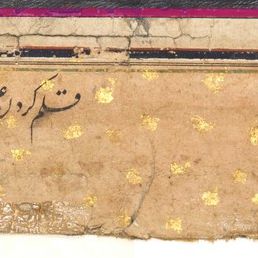 قلم کردن